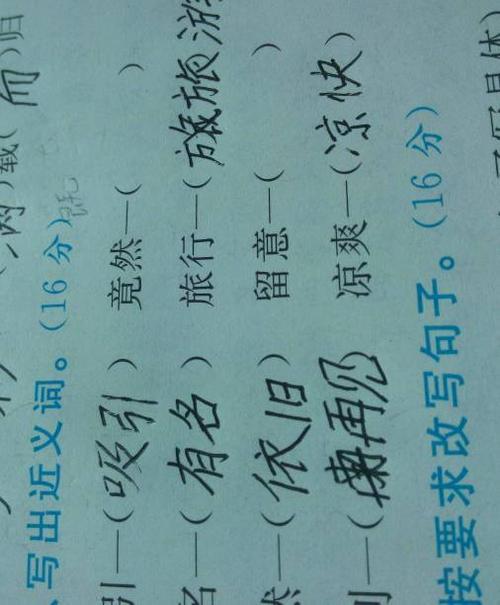 满)载(而)归
写出近义词。(16分)
引—(吸引) 竟然—( )
名—(有名) 旅行—(旅游
然—(依旧) 留意—( )
—(再见) 凉爽—(凉快)
按要求改写句子。(16分)
写具体)